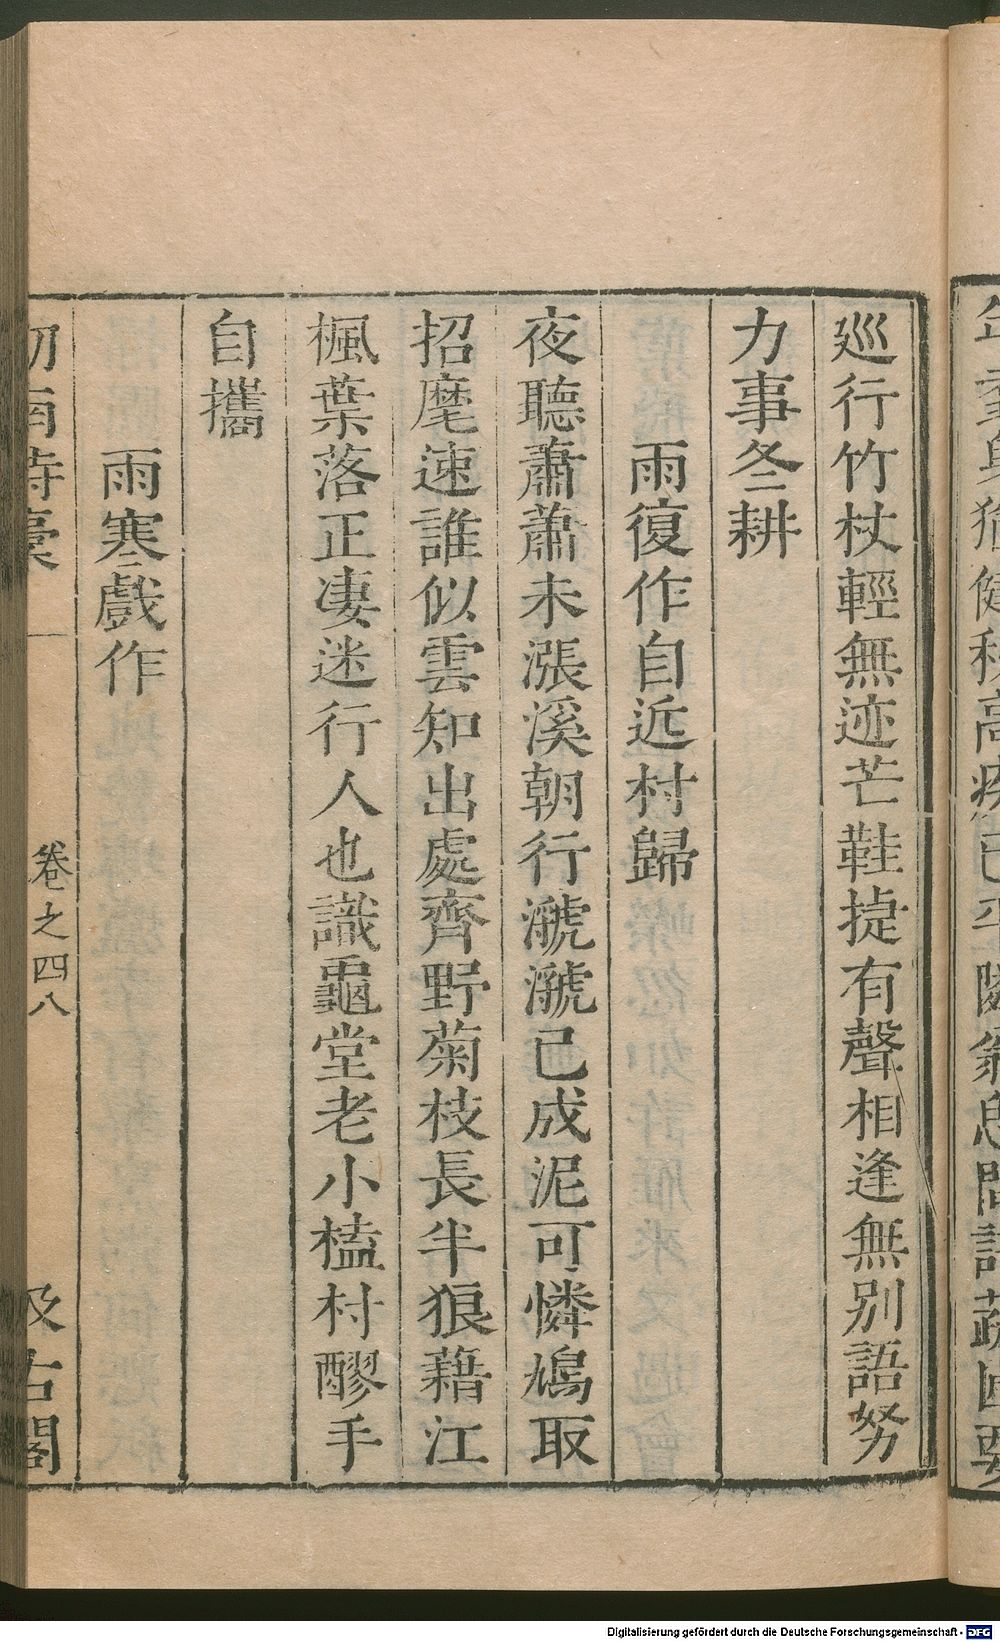 巡行竹杖輕無迹芒鞋㨗有聲相逢無别語努
力事冬耕
雨復作自近村歸
夜聽蕭蕭未漲溪朝行㶁㶁已成泥可憐鳩取
招麾速誰似雲知出處齊野菊枝長半狼藉江
楓葉落正凄迷行人也識龜堂老小榼村醪手
自攜
雨寒戲作
卷之四八
古閣
Digitalisierung gefördert durch die Deutsche Forschungsgemeinschaft - DFG